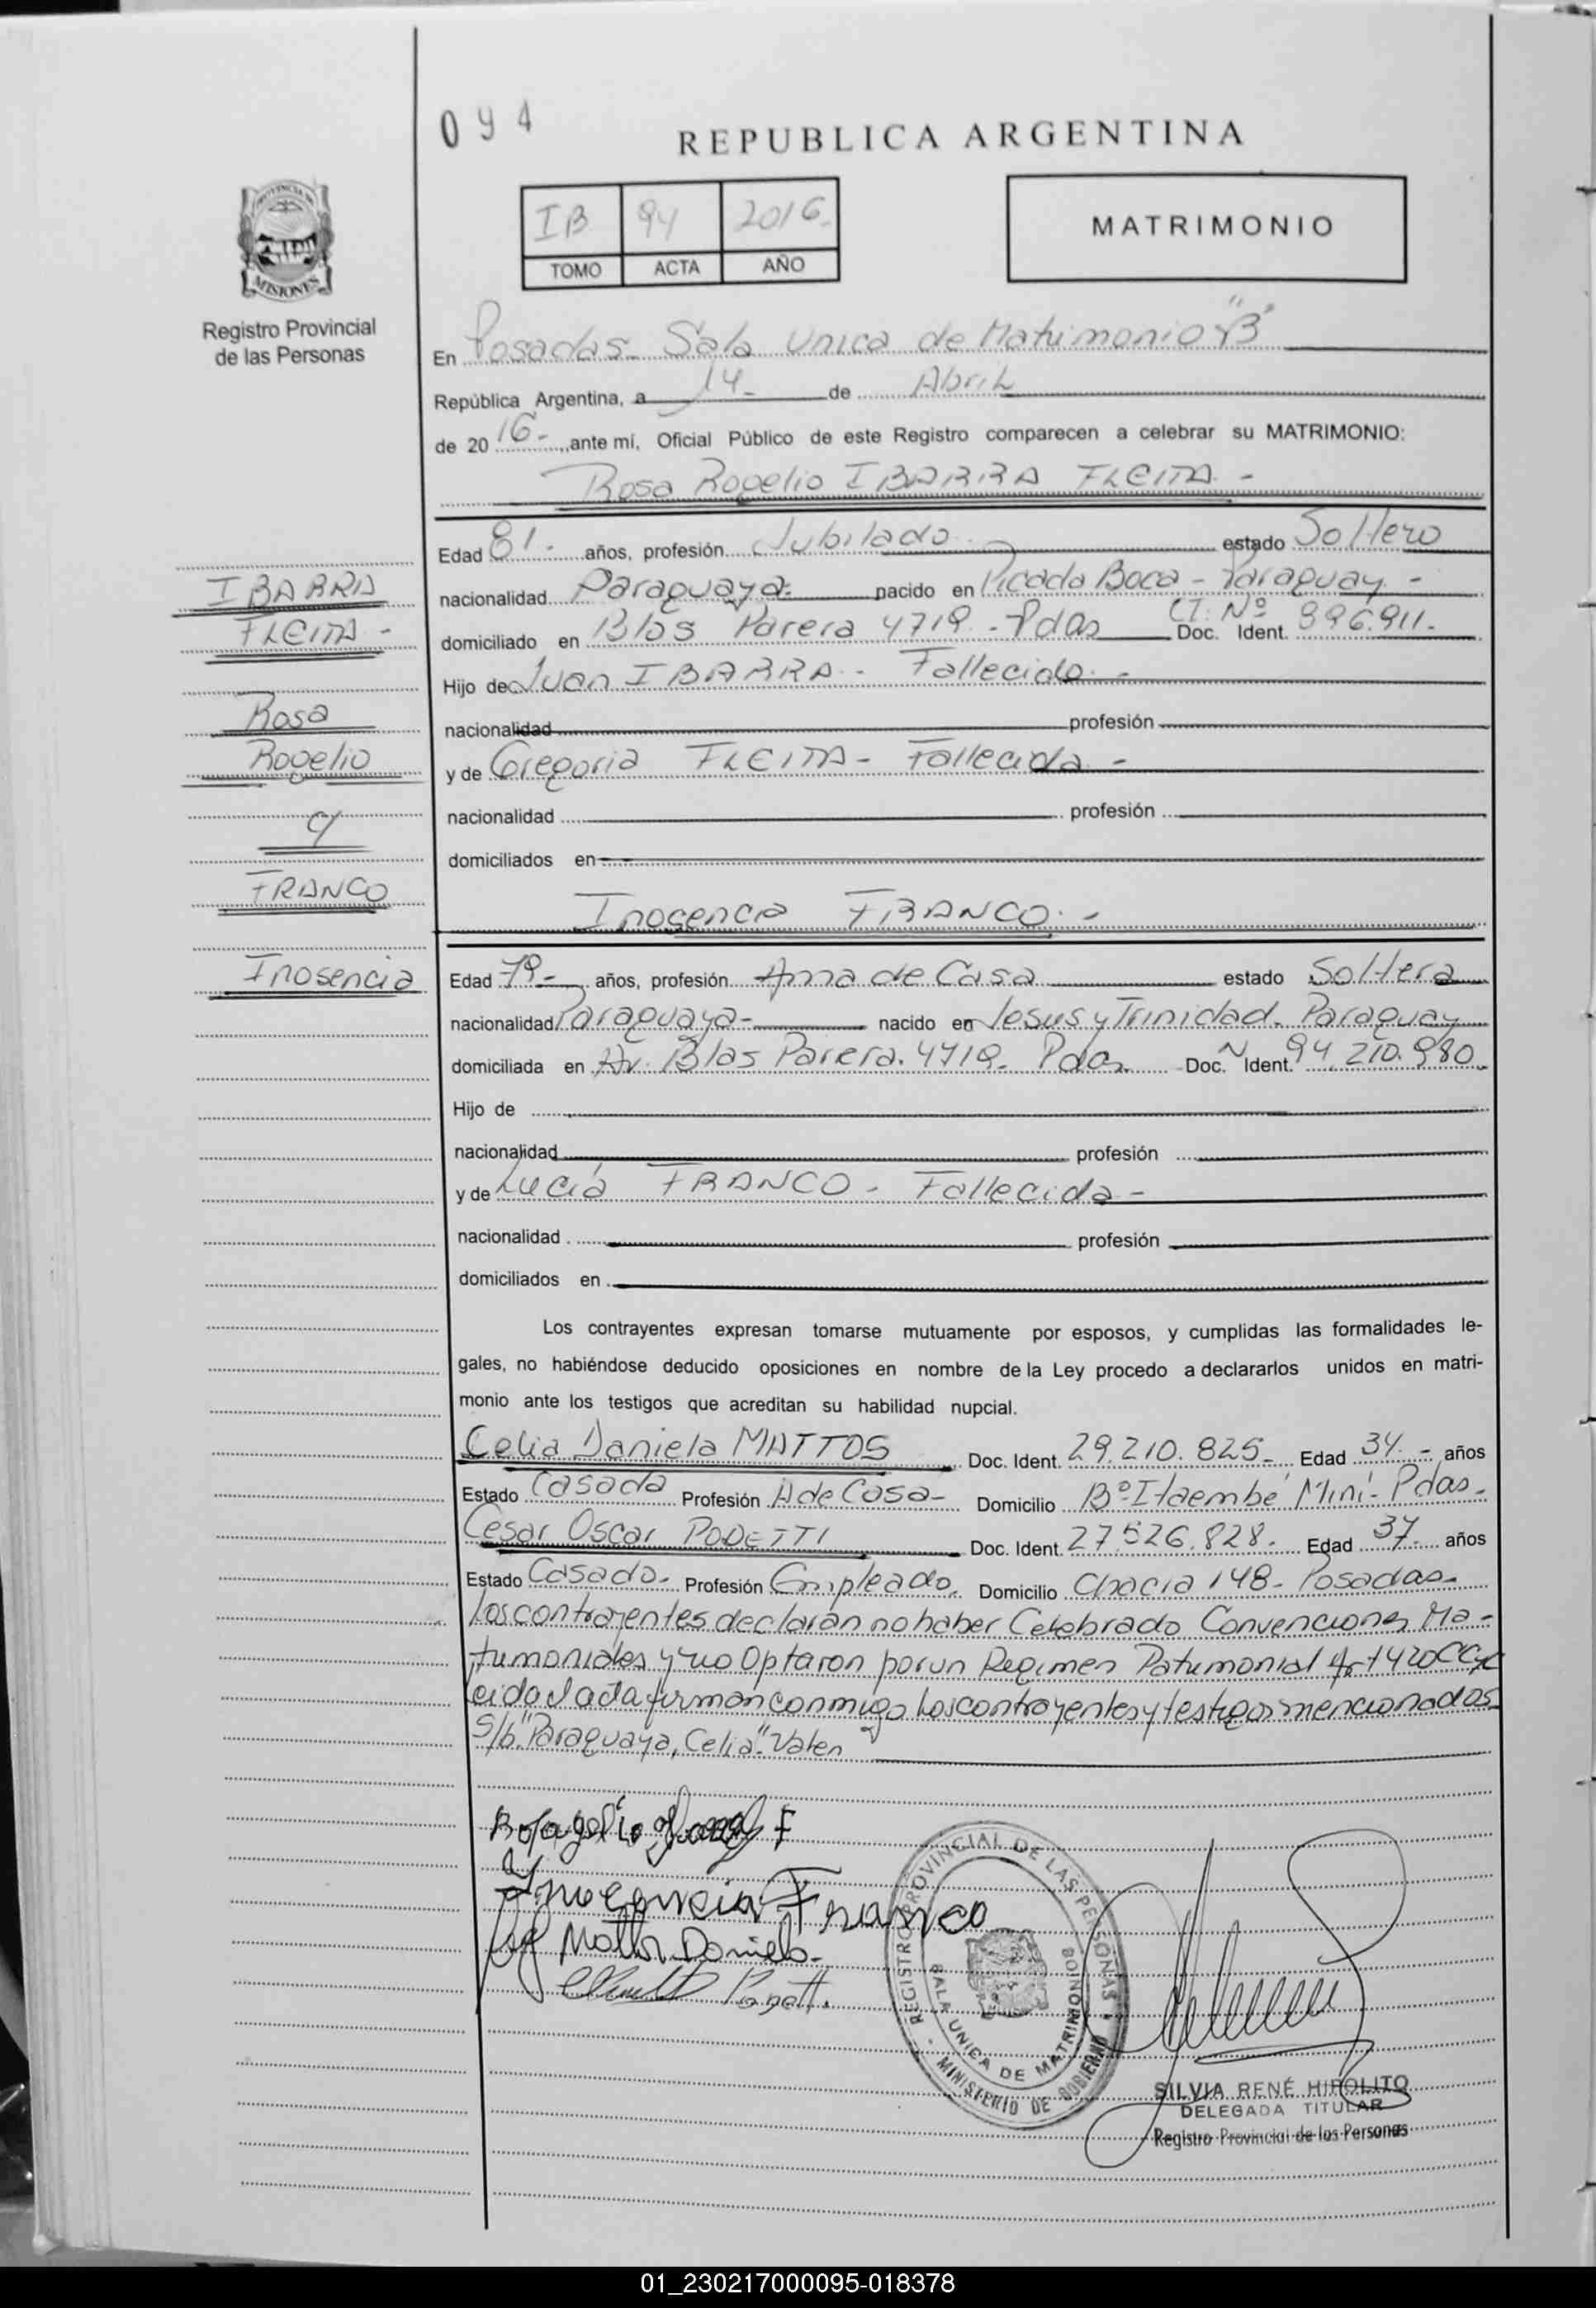 094
REPUBLICA ARGENTINA
IB 94 2016
TOMO ACTA AÑO
MATRIMONIO
PROVINCIA DE
MISIONES
Registro Provincial
de las Personas
En Posadas- Sala Unica de Matrimonio "B"
República Argentina, a 14- de Abril
de 20 16- ,ante mí, Oficial Público de este Registro comparecen a celebrar su MATRIMONIO:
Rosa Rogelio IBARRA FLEITA -
IBARRA
FLEITA -
Rosa
Rogelio
c/
FRANCO
Inosencia
Edad 81- años, profesión Jubilado estado Soltero
nacionalidad Paraguaya- nacido en Picada Boca - Paraguay -
domiciliado en Blas Parera 4719 - Pdas CI. Nº Doc. Ident. 996.911-
Hijo de Juan IBARRA - Fallecido -
nacionalidad profesión
y de Gregoria FLEITA - Fallecida -
nacionalidad profesión
domiciliados en
Inosencia FRANCO. -
Edad 79- años, profesión Ama de Casa estado Soltera
nacionalidad Paraguaya- nacido en Jesus y Trinidad. Paraguay
domiciliada en Av. Blas Parera. 4719- Pdas Doc. N Ident. 94.210.980
Hijo de
nacionalidad profesión
y de Lucía FRANCO - Fallecida -
nacionalidad profesión
domiciliados en
Los contrayentes expresan tomarse mutuamente por esposos, y cumplidas las formalidades le-
gales, no habiéndose deducido oposiciones en nombre de la Ley procedo a declararlos unidos en matri-
monio ante los testigos que acreditan su habilidad nupcial.
Celia Daniela MATTOS Doc. Ident. 29.210.825- Edad 34- años
Estado Casada Profesión A de Casa- Domicilio Bº Itaembé Miní- Pdas-
Cesar Oscar PODETTI Doc. Ident. 27.526.828- Edad 37- años
Estado Casado- Profesión Empleado. Domicilio Chacra 148- Posadas-
Los contrayentes declaran no haber Celebrado Convenciones Ma-
trimoniales y no Optaron por un Regimen Patrimonial Art 420 CCyC
leida el acta firman conmigo los contrayentes y testigos mencionados
S/b "Paraguaya, Celia" Valen
Inocencia Franco
Mattos Daniela
REGISTRO PROVINCIAL DE LAS PERSONAS
SALA UNICA DE MATRIMONIOS
MINISTERIO DE GOBIERNO
SILVIA RENÉ HIPOLITO
DELEGADA TITULAR
Registro Provincial de las Personas
01_230217000095-018378